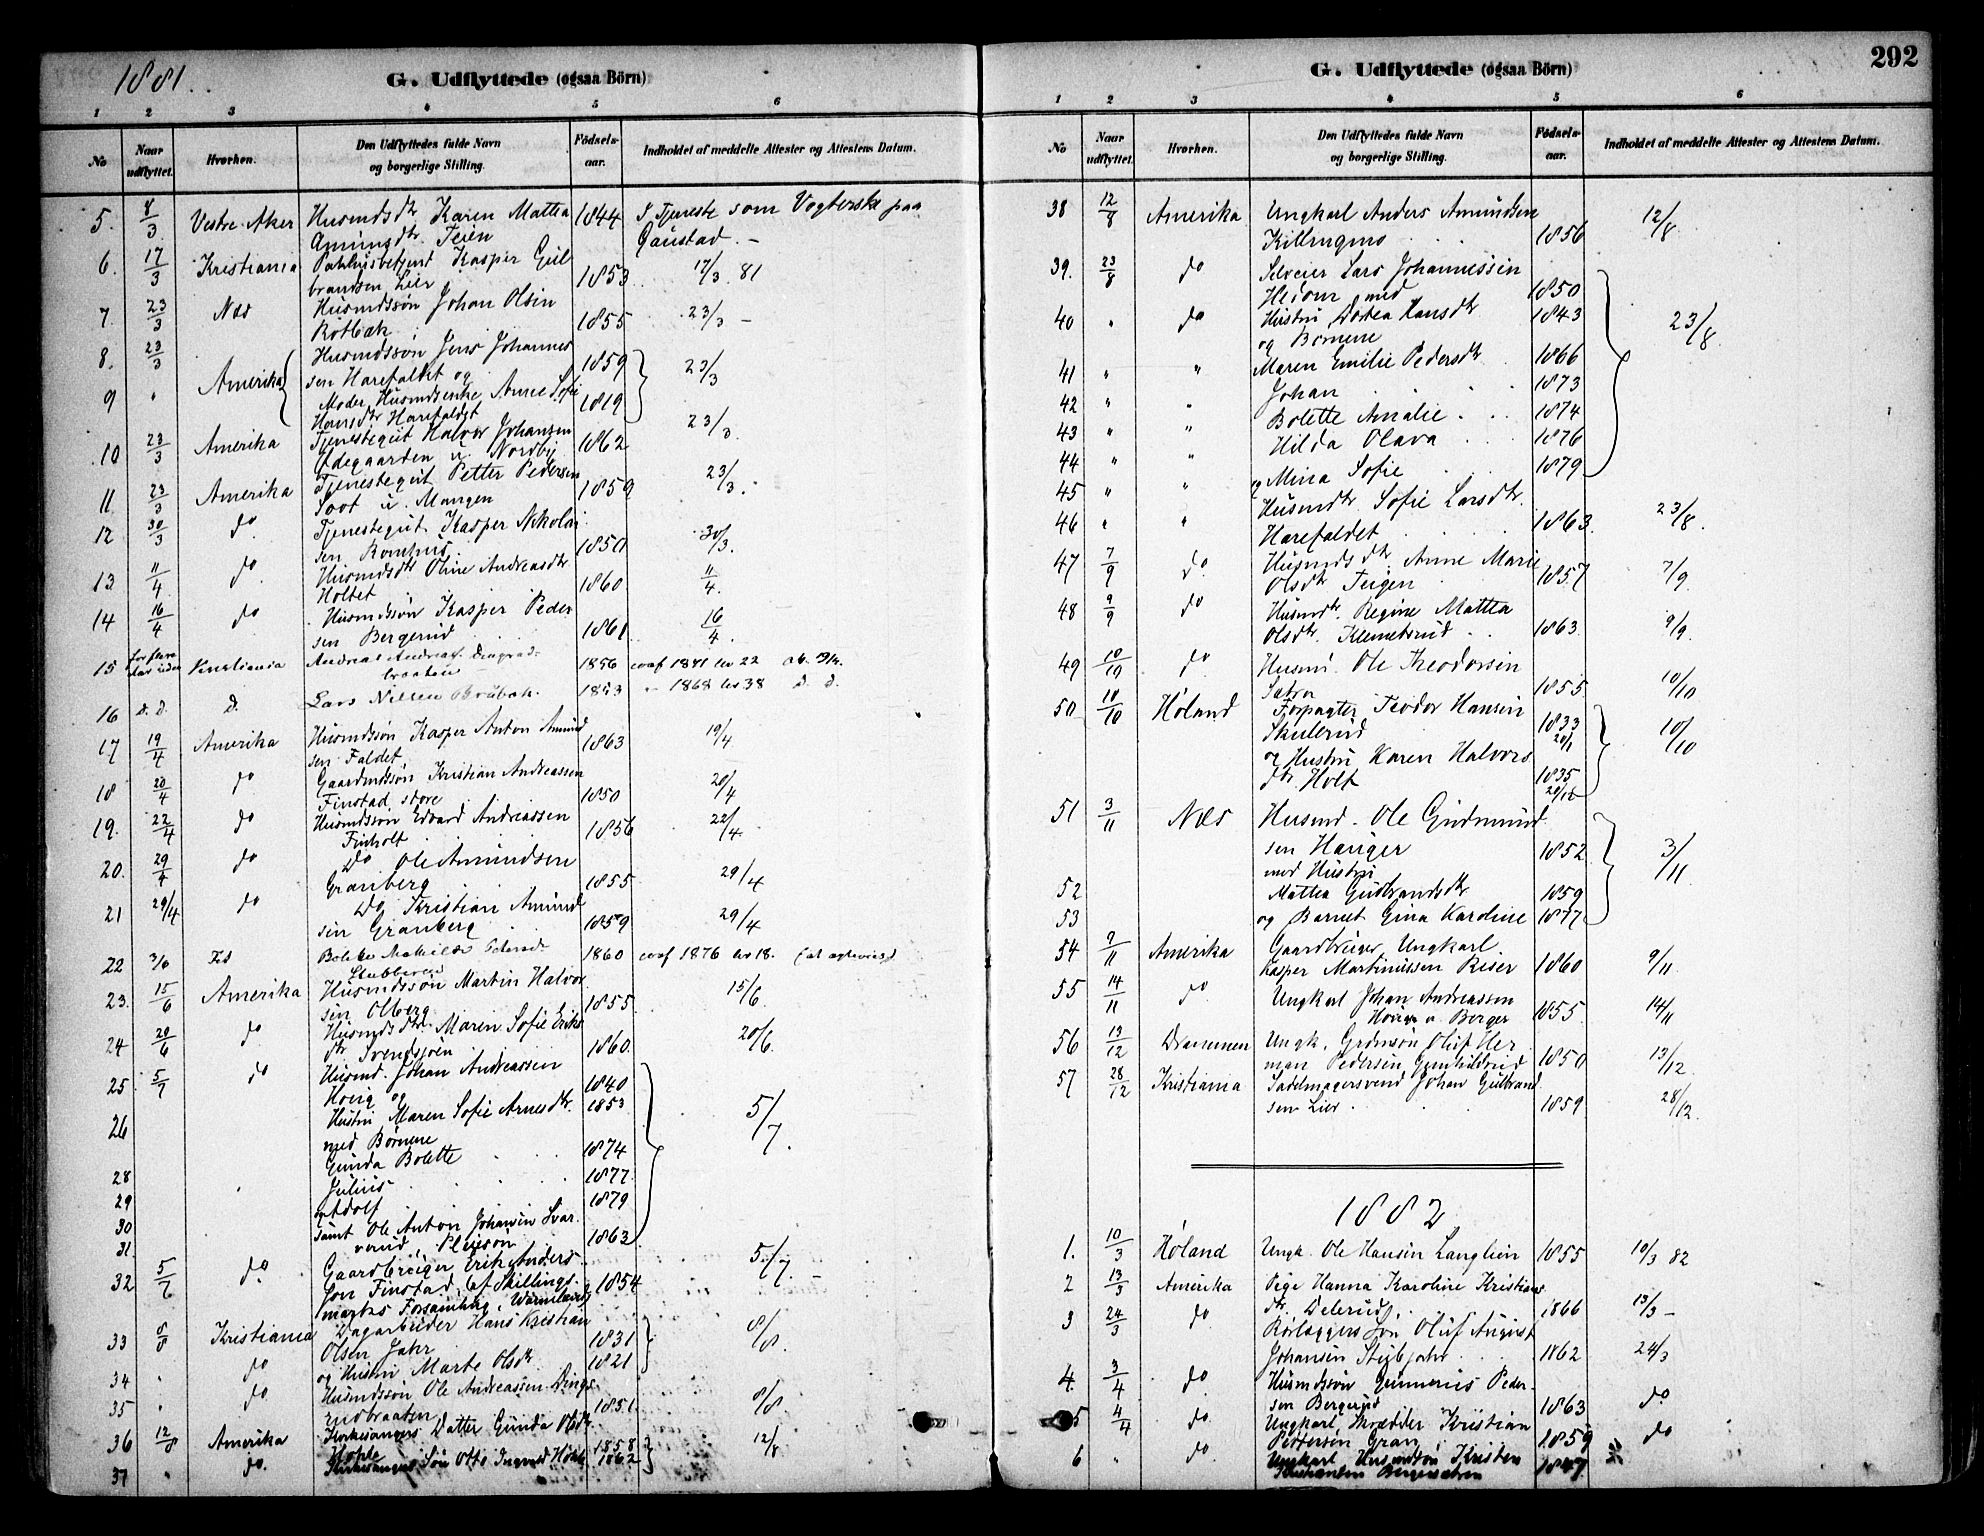 1881.
G. Udflyttede (ogsaa Börn)
1 2 3 4 5 6
No
Naar udflyttet.
Hvorhen.
Den Udflyttedes fulde Navn og borgerlige Stilling.
Födsels-aar.
Indholdet af meddelte Attester og Attestens Datum.
5. 8/3 Vestre Aker Husmdsdtr Karen Mattea 1844 I Tjeneste som Vogterske paa
Amundsdtr. Teien Gaustad. –
6. 17/3 Kristiania Pakhusbetjent Kasper Gul
brandsen Lier 1853 17/3. 81
7. 23/3 Næs Husmdssøn Johan Olsen
Rotbæk 1855 23/3 –
8. 23/3 Husmdssøn Jens Johannes
Amerika sen Harefaldet og 1859 23/3
9 " Moder, Husmdsenke Anne Sofie
Hansdtr Harefaldet 1819
10 23/3 Amerika Tjenestegut Halvor Johansen 23/3.
Ødegaarden u. Nordby 1862
11. 23/3 Amerika Tjenestegut Petter Pedersen 23/3.
Soot u. Mangen 1859
12 30/3 do Tjenestegut Kasper Nikolai
sen Romhus 1850 30/3.
13 11/4 do Husmdsdtr Oline Andreasdtr
Holtet 1860 11/4.
14 16/4 do Husmdssøn Kasper Peder
sen Bergerud 1861 16/4.
15 Kristiania Andreas Andreas. Dingsrud-
braaten 1856 conf 1871 nr 22
16 d. d. d. Lars Nilsen Brubak. 1853 – 1868 nr 38 d. d.
17 19/4 Amerika Husmdssøn Kasper Anton Amund
sen Faldet 1863 19/4
18 20/4 do Gaardmdssøn Kristian Andreassen
Finstad store 1850 20/4
19. 22/4 do Husmdssøn Edvard Andreassen
Finholt 1856 22/4
20. 29/4 do Do Ole Amundsen
Granberg 1855 29/4
21 29/4 do Do Kristian Amund
sen Granberg 1859 29/4
22 3/6 Fet Bolette Mathilde
1860 conf 1876 nr 18.
23. 15/6 Amerika Husmdssøn Martin Halvor
sen Olberg 1855 15/6.
24 20/6 do Husmdsdtr. Maren Sofie Eriks
dtr Svendsjøen 1860. 20/6.
25 5/7 do Husmd. Johan Andreassen
Hovig og 1840
26 Hustru Maren Sofie Arnesdtr. 1853 5/7.
med Børnene
Gunda Bolette 1874
28 Julius 1877
29 og Adolf 1879
30 samt Ole Anton Johansen Svar
31 verud, Pleiesøn 1863
32 5/7 do Gaardbruger Erik Anders 5/7. –
son Finstad, af Skillings- 1854
marks Forsamling, Wärmland
33 8/8 Kristiania Dagarbeider Hans Kristian
Olsen Jahr 1831 8/8.
34 " do og Hustru Marte Olsdtr. 1821
35 " do Husmdssøn Ole Andreassen Dings
rudbraaten 1851. 8/8.
36 12/8 Amerika Kirkesangers Datter Gunda Olsdtr
Hohle 1858 12/8
37 " do. Kirkesangers Søn Otto Ingvald Hohle 1862
292
G. Udflyttede (ogsaa Börn)
1 2 3 4 5 6
No
Naar udflyttet.
Hvorhen.
Den Udflyttedes fulde Navn og borgerlige Stilling.
Födsels-aar.
Indholdet af meddelte Attester og Attestens Datum.
38 12/8 Amerika Ungkarl Anders Amundsen 12/8
Killingmo 1856
39. 23/8 do Selveier Lars Johannessen
Heiom med 1850
40 " do Hustru Dortea Hansdtr 1843 23/8.
og Børnene
41 " " Maren Emilie Pedersdtr 1866
42 " " Johan 1873
43 " " Bolette Amalie 1874
44 " " Hilda Olava 1876
45 " " og Mina Sofie 1879
46 " " Husmdtr. Sofie Larsdtr.
Harefaldet 1863. 23/8.
47 7/9 do Husmdsdtr Anne Marie
Olsdtr Teigen 1857 7/9
48 9/9 do Husmdtr. Regine Mattea
Olsdtr. Klemetsrud 1863 9/9.
49 10/10 do Husmd. Ole Theodorsen
Sætra 1855 10/10
50 10/10 Høland Forpagter Teodor Hansen
Skulerud 1833 20/1 10/10
og Hustru Karen Halvors
dtr Holt 1835 20/12
51 3/11 Næs Husmd. Ole Gudmund
sen Hauger 1852 3/11
52 med Hustru
Mattea Gudbrandsdtr 1859
53 og Barnet Gina Karoline 1877
54 9/11 Amerika Gaardbruger Ungkarl
Kasper Martinussen Riser 1860 9/11
55 14/11 do Ungkarl Johan Andreassen
Hovign u Berger 1855. 14/11
56 13/12 Drammen Ungk. Grdmsøn Oluf Her
man Pedersen Gunhildrud 1850 13/12
57 28/12 Kristiania Sadelmagersvend Johan Gulbrand
sen Lier 1859 28/12.
1882
1. 10/3 Høland Ungk. Ole Hansen Langlien 1855 10/3 82
2 13/3 Amerika Pige Hanna Karoline Kristians
dtr. Delerud 1866 13/3 –
3 24/3 do Rørlæggers Søn Oluf August
Johansen Stybjahr 1862 24/3
4. 3/4 do Husmdssøn Gunnerius Peder-
sen Bergerud 1863 do
5 4/4 do Ungkarl Skrædder Kristian
Pettersen Gran 1859 do
6 " do Ungkarl Husmdssøn Kristen
1847